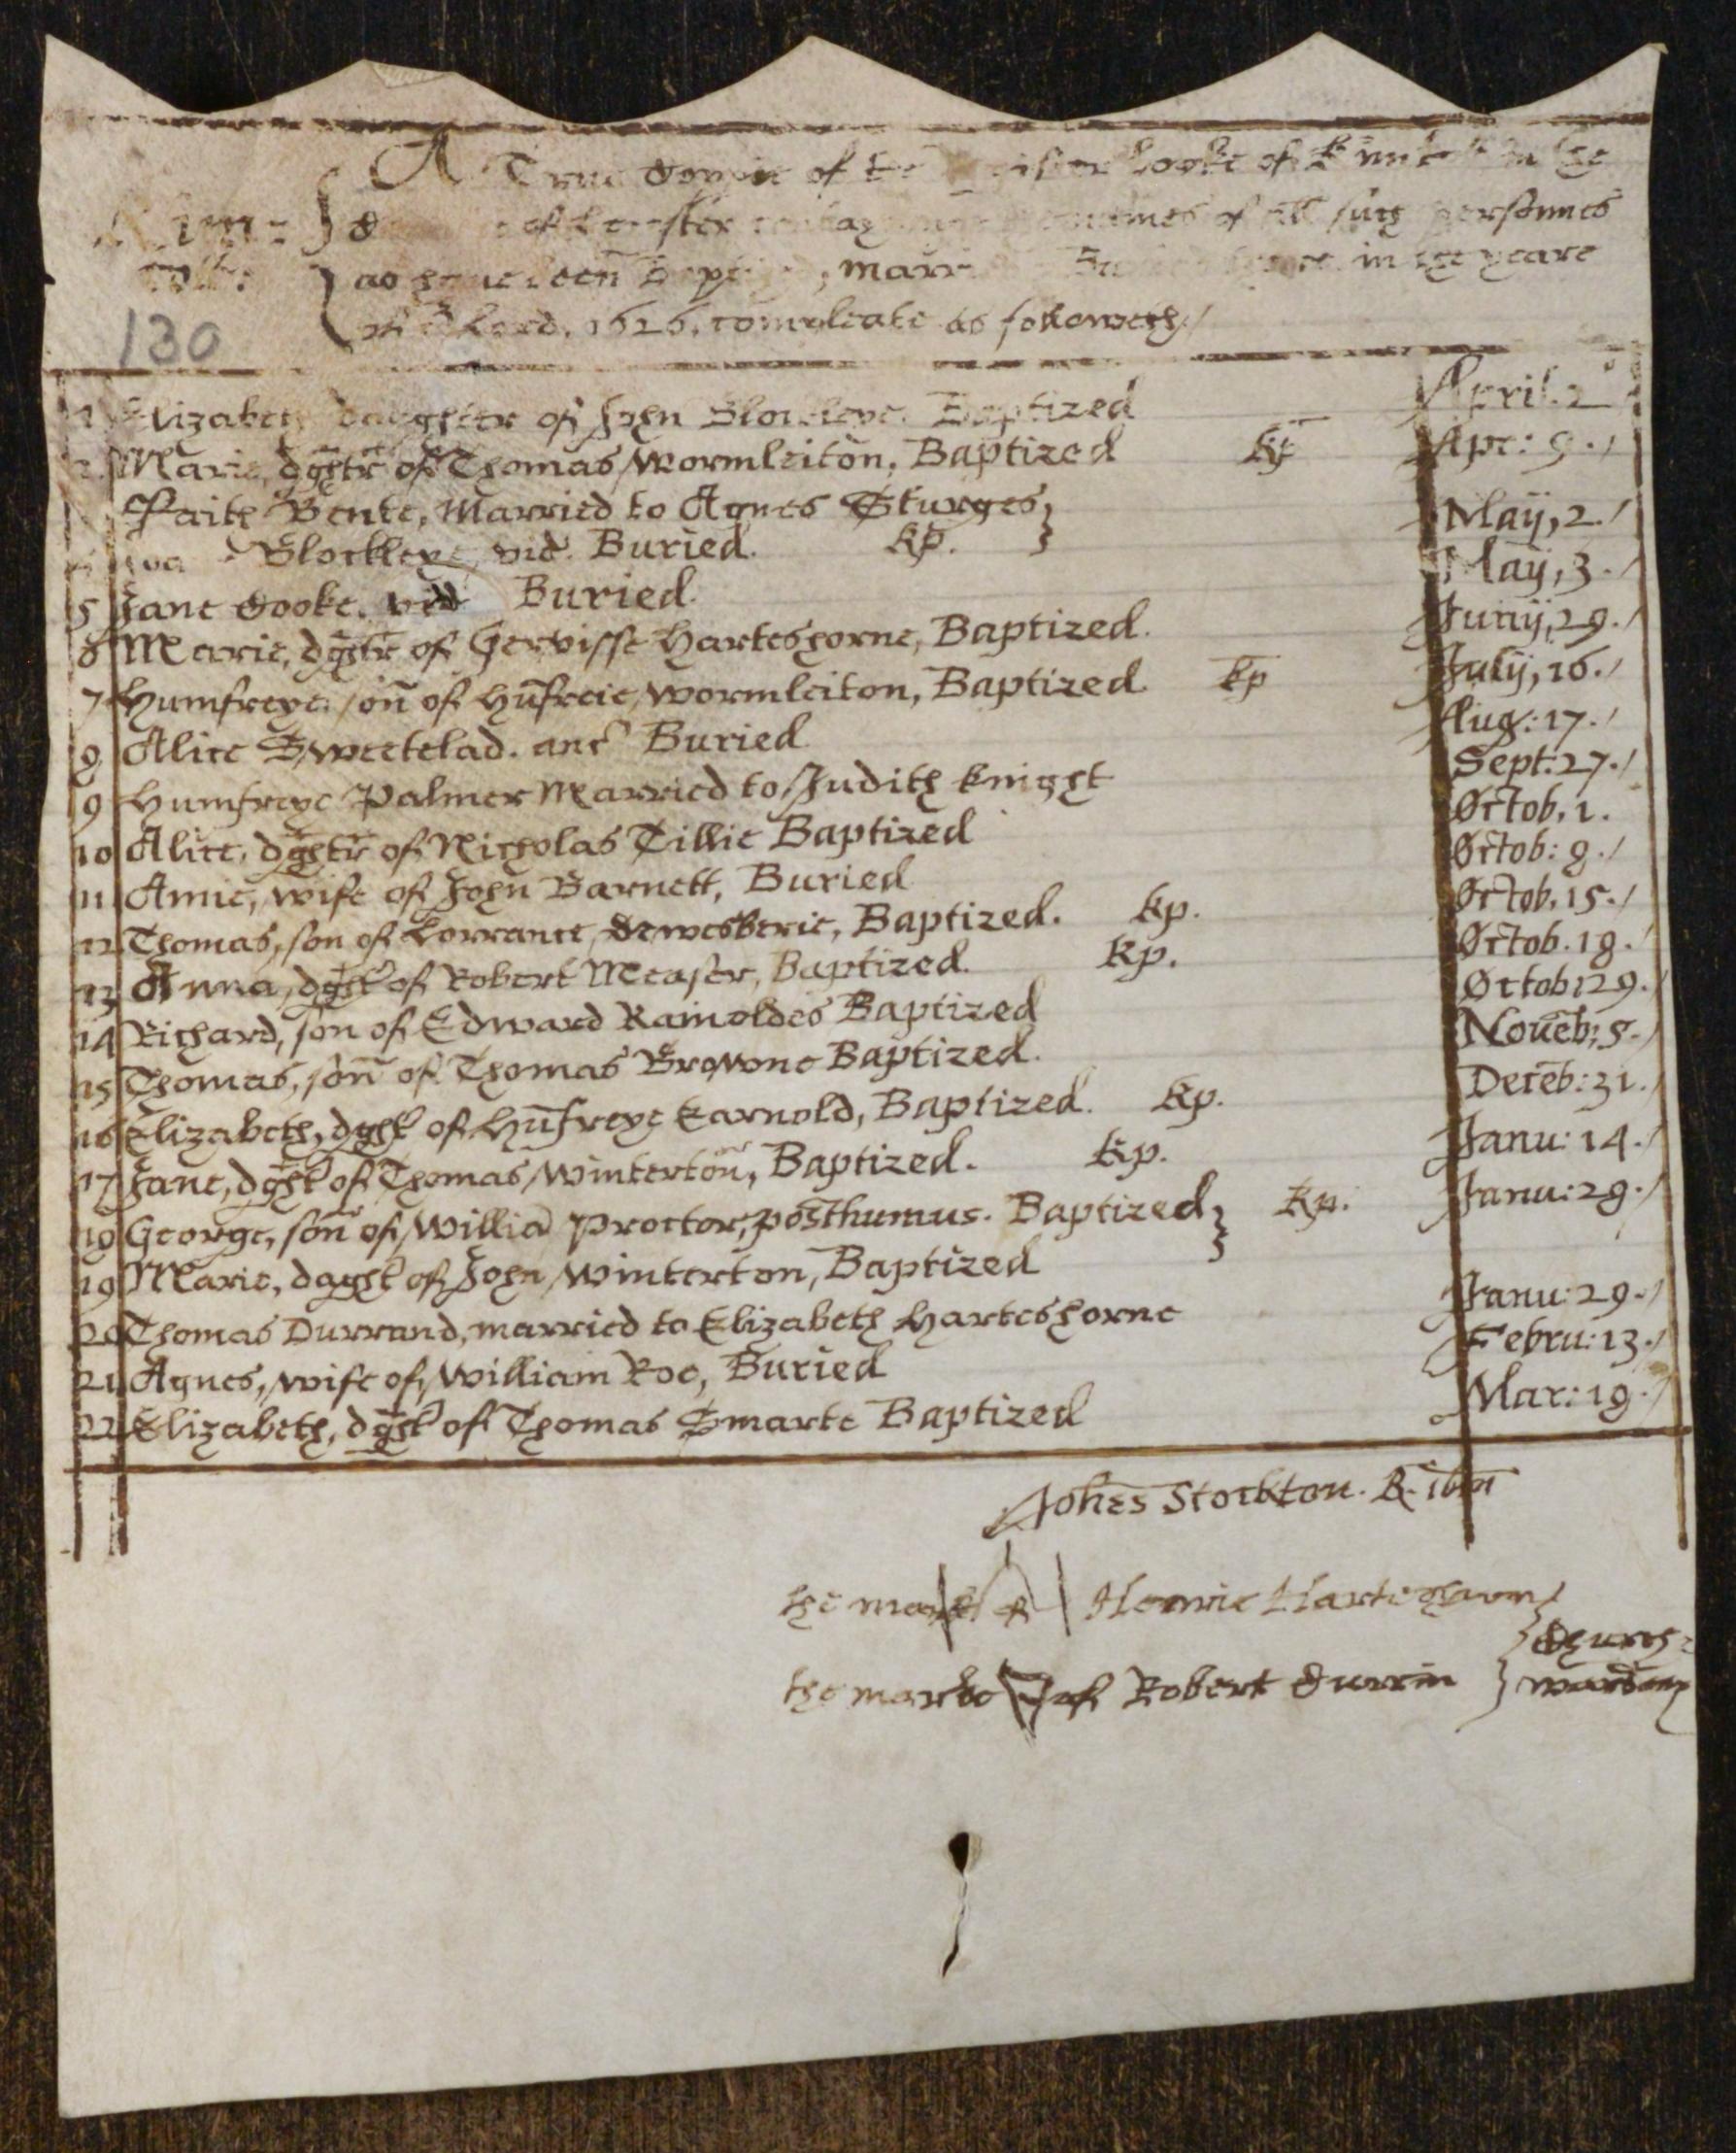 A True Coppie of the Register booke of in the
of Leicester names of all such personnes
as haue been Baptized, Marr in the yeare
of oʳ Lord. 1626. compleate as followeth./
130
1 Elizabeth daughter of John Blockleye. Baptized April. 2
2 Marie, dghtr of Thomas Wormleiton, Baptized Kp Apr: 9./
Faith Bente, Married to Agnes Sturges, May, 2./
Blockleye, vid. Buried. Kp. May, 3./
5 Jane Cooke. vid Buried.
6 Marie, dghtr of Gervisse Harteshorne, Baptized. Junij, 29./
7 Humfreye, soñ of Hũfreie Wormleiton, Baptized. Kp July, 16./
8 Alice Sweetelad. anc Buried Aug: 17./
9 Humfreye Palmer Married to Judith Knight Sept: 27./
10 Alice, dghtr of Nicholas Tillie Baptized Octob. 1.
11 Amie, wife of John Barnett, Buried Octob: 8./
12 Thomas, son of Lorrance Dewesberie, Baptized. Kp. Octob. 15./
13 Anna, dght of Robert Measer, Baptized. Kp. Octob. 18.
14 Richard, son of Edward Rainoldes Baptized Octob: 29./
15 Thomas, soñ of Thomas Browne Baptized. Nouẽb: 5./
16 Elizabeth, dght of Hũfreye Earnold, Baptized. Kp. Decẽb: 31.
17 Jane, dght of Thomas Winterton, Baptized. Kp. Janu: 14./
18 George, son of Williã Proctor, posthumus. Baptized Kp. Janu: 28./
19 Marie, daght of John Winterton, Baptized
20 Thomas Durrand, married to Elizabeth Harteshorne Janu: 29./
21 Agnes, wife of William Roe, Buried Febru: 13./
22 Elizabeth, dght of Thomas Smarte Baptized Mar: 18./
Johes Stockton. R. ibm
the marke of Henrie Harteshorn
Church-
the marke of Robert Currin wardens